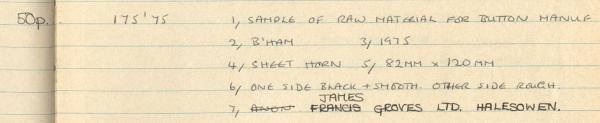 50p. 175'75 1, SAMPLE OF RAW MATERIAL FOR BUTTON MANUF
2, B'HAM 3, 1975
4, SHEET HORN 5, 82MM x 120MM
6, ONE SIDE BLACK + SMOOTH. OTHER SIDE ROUGH.
JAMES
7, ANON FRANCIS GROVES LTD. HALESOWEN.